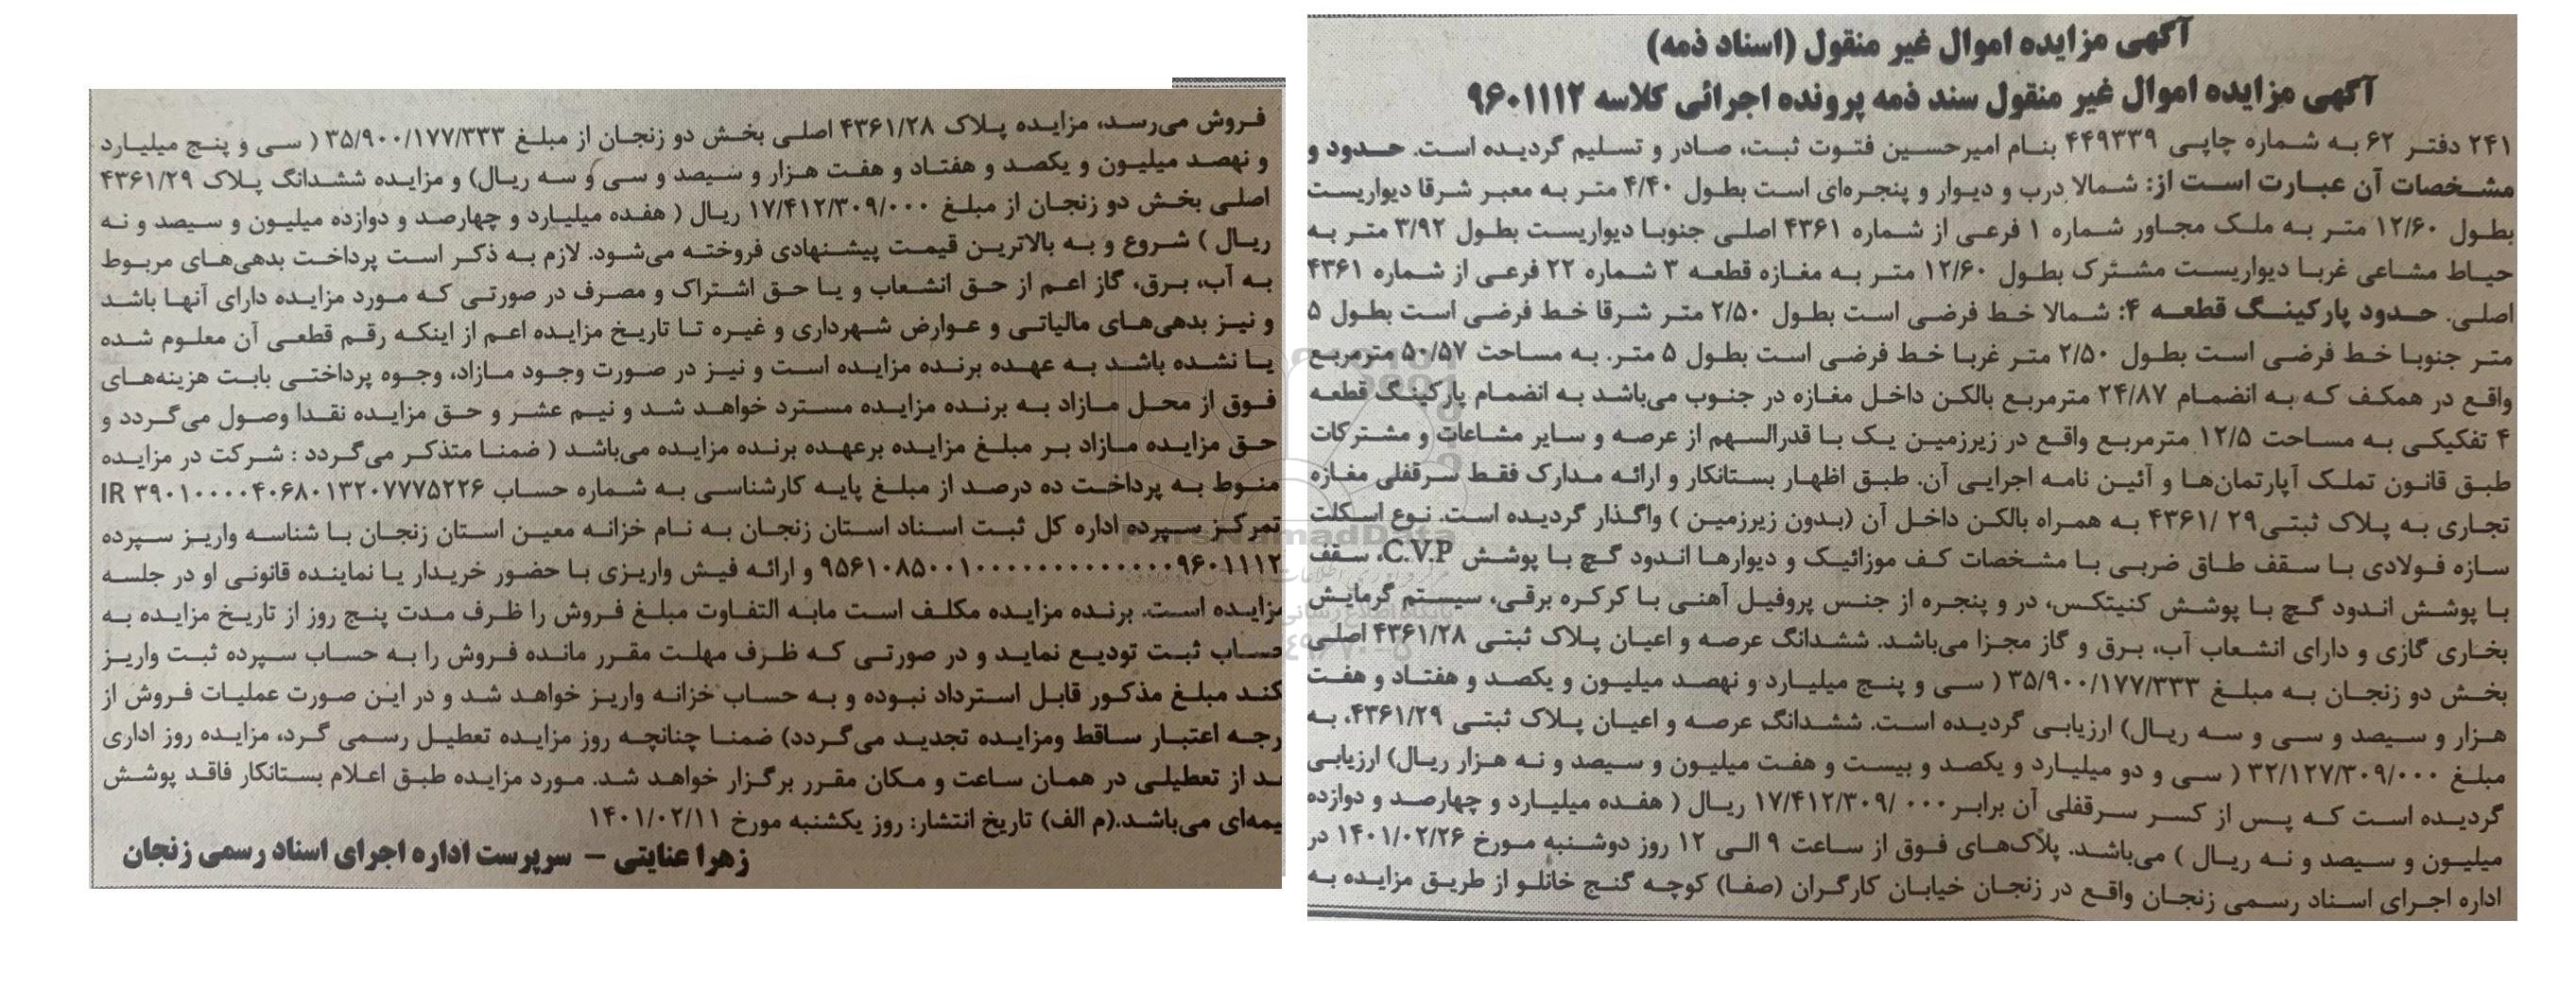 آگهی مزایده اموال غیر منقول (اسناد ذمه)
آگهی مزایده اموال غیر منقول سند ذمه پرونده اجرائی کلاسه ۹۶۰۱۱۱۲
۲۴۱ دفتر ۶۲ به شماره چاپی ۴۴۹۳۳۹ بنام امیرحسین فتوت ثبت، صادر و تسلیم گردیده است. حدود و
مشخصات آن عبارت است از: شمالا درب و دیوار و پنجره‌ای است بطول ۴/۴۰ متر به معبر شرقا دیواریست
بطول ۱۲/۶۰ متر به ملک مجاور شماره ۱ فرعی از شماره ۴۳۶۱ اصلی جنوبا دیواریست بطول ۳/۹۲ متر به
حیاط مشاعی غربا دیواریست مشترک بطول ۱۲/۶۰ متر به مغازه قطعه ۳ شماره ۲۲ فرعی از شماره ۴۳۶۱
اصلی. حدود پارکینگ قطعه ۴: شمالا خط فرضی است بطول ۲/۵۰ متر شرقا خط فرضی است بطول ۵
متر جنوبا خط فرضی است بطول ۲/۵۰ متر غربا خط فرضی است بطول ۵ متر. به مساحت ۵۰/۵۷ مترمربع
واقع در همکف که به انضمام ۲۴/۸۷ مترمربع بالکن داخل مغازه در جنوب می‌باشد به انضمام پارکینگ قطعه
۴ تفکیکی به مساحت ۱۲/۵ مترمربع واقع در زیرزمین یک با قدرالسهم از عرصه و سایر مشاعات و مشترکات
طبق قانون تملک آپارتمان‌ها و آئین نامه اجرایی آن. طبق اظهار بستانکار و ارائه مدارک فقط سرقفلی مغازه
تجاری به پلاک ثبتی ۲۹ /۴۳۶۱ به همراه بالکن داخل آن (بدون زیرزمین ) واگذار گردیده است. نوع اسکلت
سازه فولادی با سقف طاق ضربی با مشخصات کف موزائیک و دیوارها اندود گچ با پوشش C.V.P، سقف
با پوشش اندود گچ با پوشش کنیتکس، در و پنجره از جنس پروفیل آهنی با کرکره برقی، سیستم گرمایش
بخاری گازی و دارای انشعاب آب، برق و گاز مجزا می‌باشد. ششدانگ عرصه و اعیان پلاک ثبتی ۴۳۶۱/۲۸ اصلی
بخش دو زنجان به مبلغ ۳۵/۹۰۰/۱۷۷/۳۳۳ ( سی و پنج میلیارد و نهصد میلیون و یکصد و هفتاد و هفت
هزار و سیصد و سی و سه ریال) ارزیابی گردیده است. ششدانگ عرصه و اعیان پلاک ثبتی ۴۳۶۱/۲۹، به
مبلغ ۳۲/۱۲۷/۳۰۹/۰۰۰ ( سی و دو میلیارد و یکصد و بیست و هفت میلیون و سیصد و نه هزار ریال) ارزیابی
گردیده است که پس از کسر سرقفلی آن برابر ۰۰۰ /۱۷/۴۱۲/۳۰۹ ریال ( هفده میلیارد و چهارصد و دوازده
میلیون و سیصد و نه ریال ) می‌باشد. پلاک‌های فوق از ساعت ۹ الی ۱۲ روز دوشنبه مورخ ۱۴۰۱/۰۲/۲۶ در
اداره اجرای اسناد رسمی زنجان واقع در زنجان خیابان کارگران (صفا) کوچه گنج خانلو از طریق مزایده به
فروش می‌رسد، مزایده پلاک ۴۳۶۱/۲۸ اصلی بخش دو زنجان از مبلغ ۳۵/۹۰۰/۱۷۷/۳۳۳ ( سی و پنج میلیارد
و نهصد میلیون و یکصد و هفتاد و هفت هزار و سیصد و سی و سه ریال) و مزایده ششدانگ پلاک ۴۳۶۱/۲۹
اصلی بخش دو زنجان از مبلغ ۱۷/۴۱۲/۳۰۹/۰۰۰ ریال ( هفده میلیارد و چهارصد و دوازده میلیون و سیصد و نه
ریال ) شروع و به بالاترین قیمت پیشنهادی فروخته می‌شود. لازم به ذکر است پرداخت بدهی‌های مربوط
به آب، برق، گاز اعم از حق انشعاب و یا حق اشتراک و مصرف در صورتی که مورد مزایده دارای آنها باشد
و نیز بدهی‌های مالیاتی و عوارض شهرداری و غیره تا تاریخ مزایده اعم از اینکه رقم قطعی آن معلوم شده
یا نشده باشد به عهده برنده مزایده است و نیز در صورت وجود مازاد، وجوه پرداختی بابت هزینه‌های
فوق از محل مازاد به برنده مزایده مسترد خواهد شد و نیم عشر و حق مزایده نقدا وصول می‌گردد و
حق مزایده مازاد بر مبلغ مزایده برعهده برنده مزایده می‌باشد ( ضمنا متذکر می‌گردد : شرکت در مزایده
منوط به پرداخت ده درصد از مبلغ پایه کارشناسی به شماره حساب IR ۳۹۰۱۰۰۰۰۴۰۶۸۰۱۳۲۰۷۷۷۵۲۲۶
تمرکز سپرده اداره کل ثبت اسناد استان زنجان به نام خزانه معین استان زنجان با شناسه واریز سپرده
و ارائه فیش واریزی با حضور خریدار یا نماینده قانونی او در جلسه
مزایده است. برنده مزایده مکلف است مابه التفاوت مبلغ فروش را ظرف مدت پنج روز از تاریخ مزایده به
حساب ثبت تودیع نماید و در صورتی که ظرف مهلت مقرر مانده فروش را به حساب سپرده ثبت واریز
کند مبلغ مذکور قابل استرداد نبوده و به حساب خزانه واریز خواهد شد و در این صورت عملیات فروش از
رجه اعتبار ساقط ومزایده تجدید می‌گردد) ضمنا چنانچه روز مزایده تعطیل رسمی گرد، مزایده روز اداری
بد از تعطیلی در همان ساعت و مکان مقرر برگزار خواهد شد. مورد مزایده طبق اعلام بستانکار فاقد پوشش
یمه‌ای می‌باشد.(م الف) تاریخ انتشار: روز یکشنبه مورخ ۱۴۰۱/۰۲/۱۱
زهرا عنایتی – سرپرست اداره اجرای اسناد رسمی زنجان